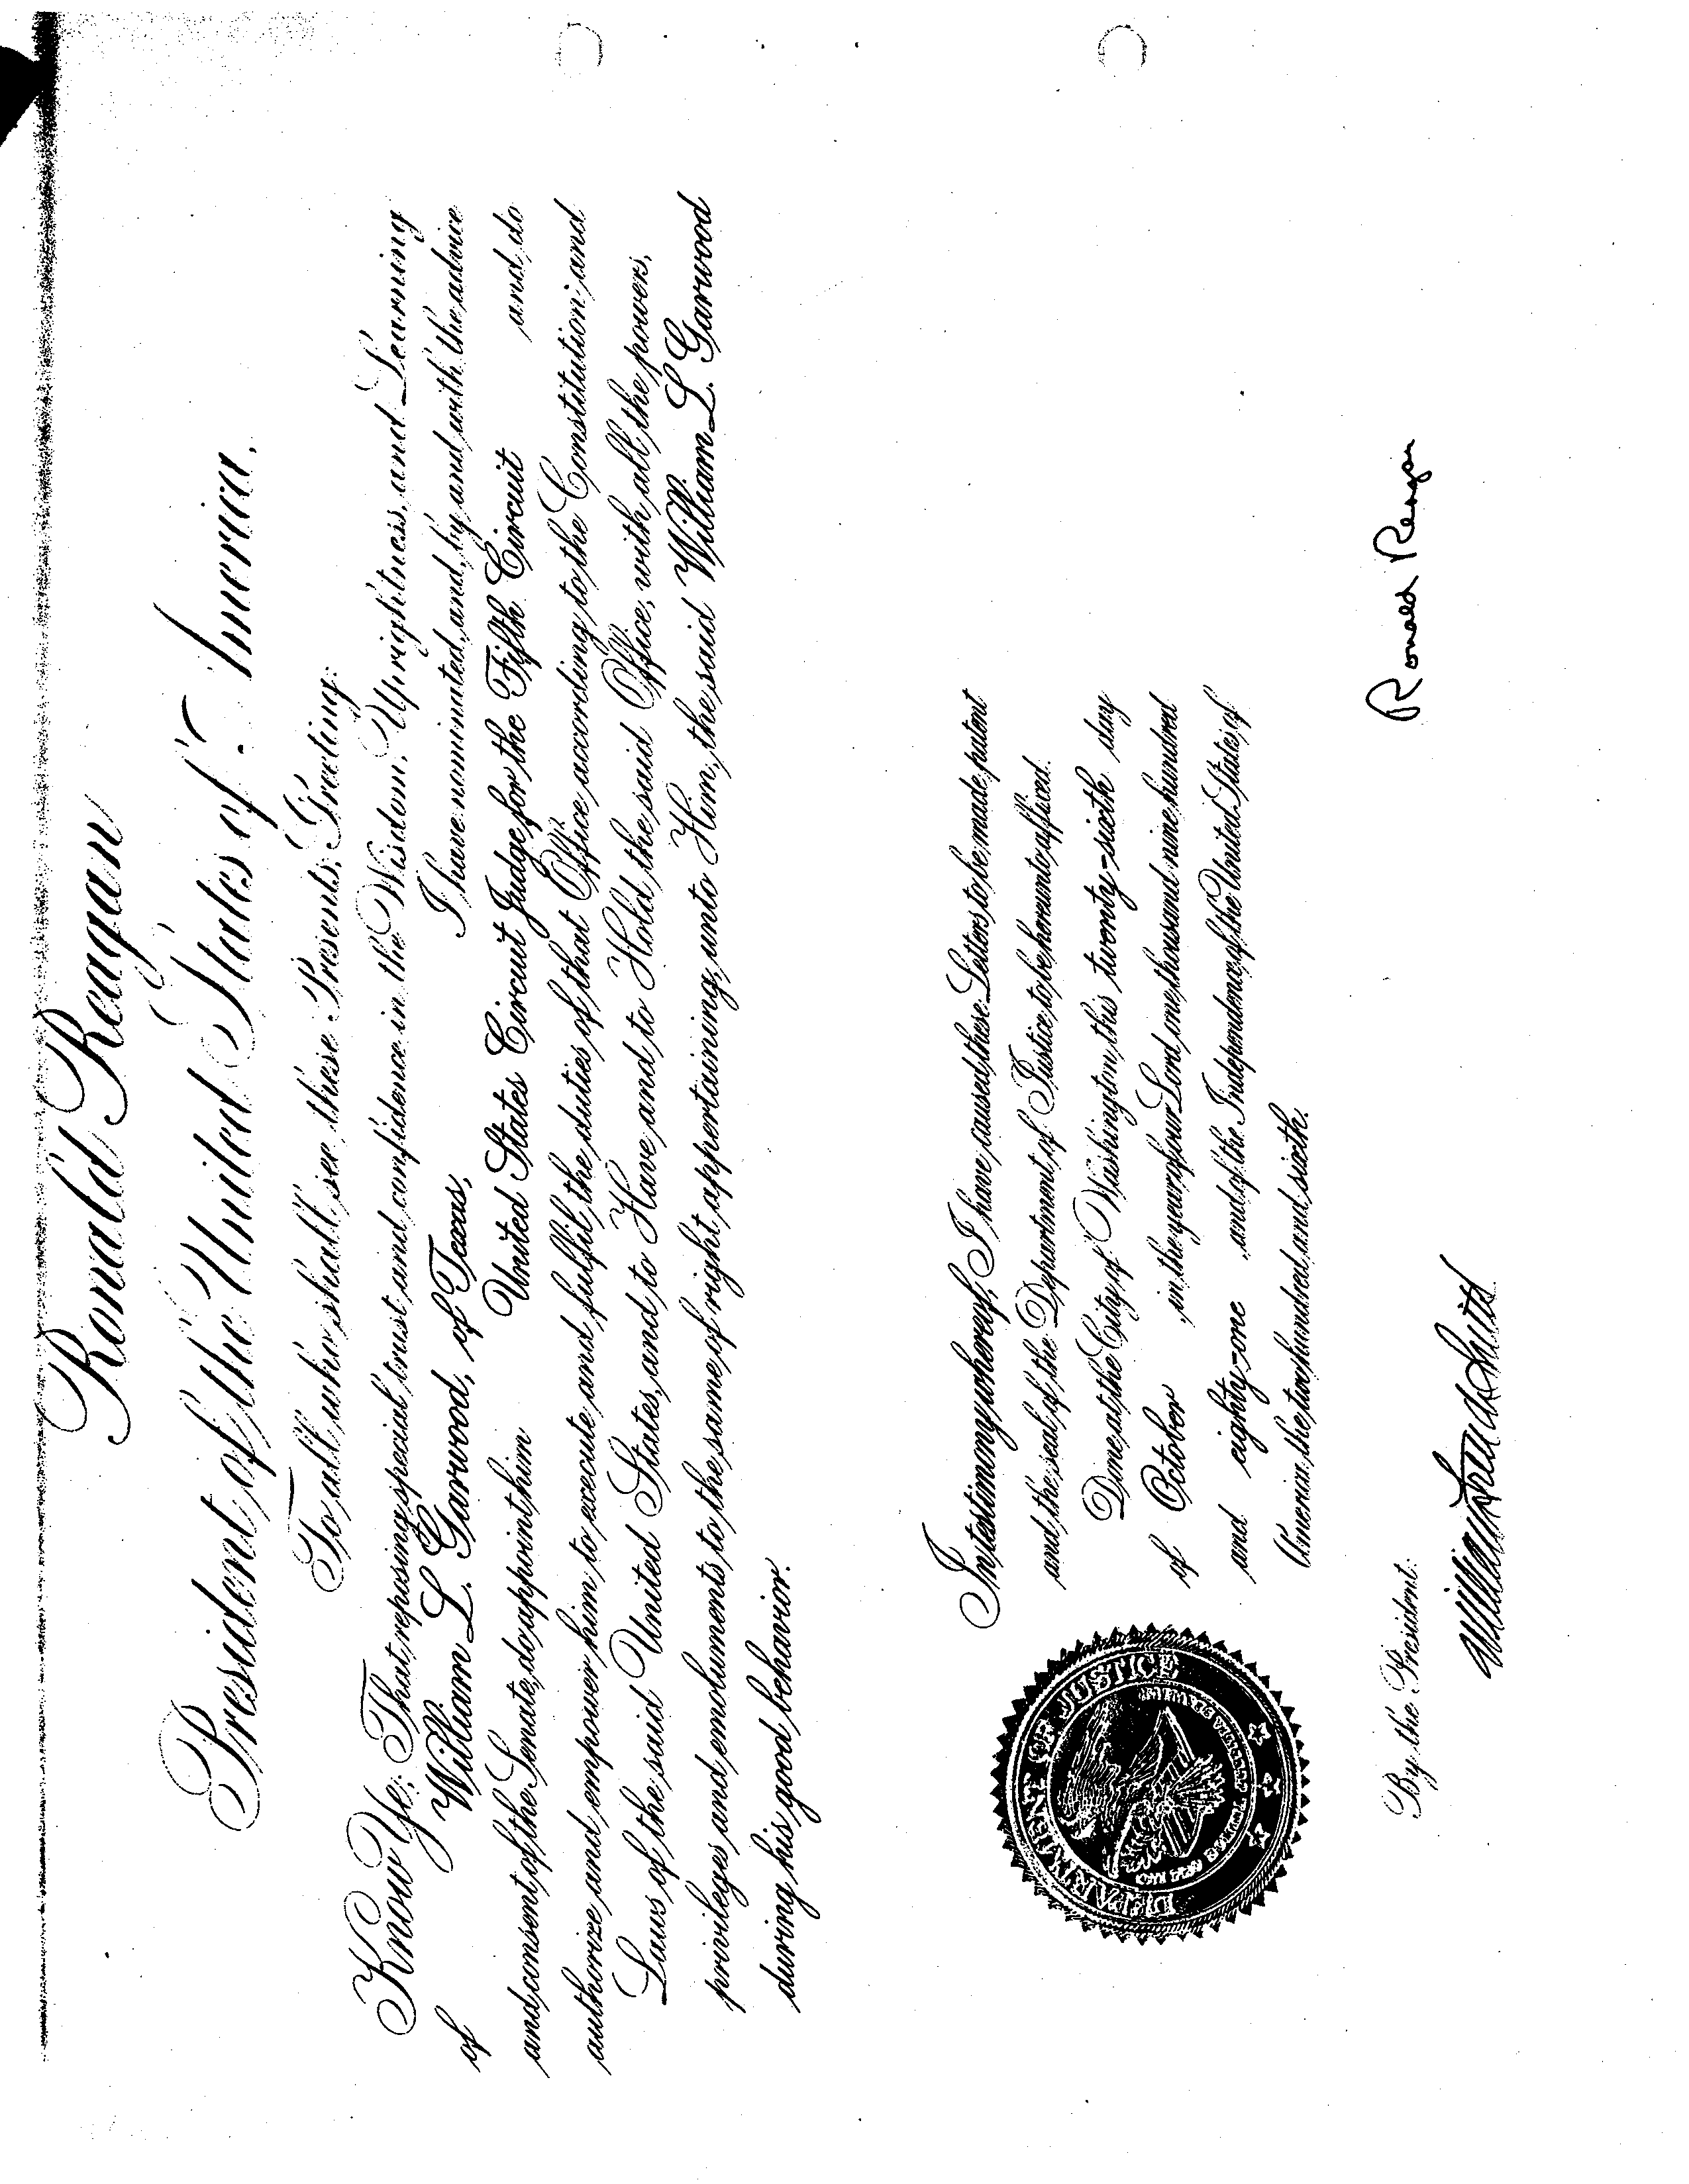 Ronald Reagan
President of the United States of America,
To all who shall see these Presents, Greeting:
Know Ye: That reposing special trust and confidence in the Wisdom, Uprightness, and Learning
of William L. Garwood, of Texas, I have nominated, and, by and with the advice
and consent of the Senate, do appoint him United States Circuit Judge for the Fifth Circuit and do
authorize and empower him to execute and fulfil the duties of that Office according to the Constitution and
Laws of the said United States, and to Have and to Hold the said Office, with all the powers,
privileges and emoluments to the same of right appertaining, unto Him, the said William L. Garwood
during his good behavior.
In testimony whereof, I have caused these Letters to be made patent
and the seal of the Department of Justice to be hereunto affixed.
Done at the City of Washington, this twenty-sixth day
of October in the year of our Lord one thousand nine hundred
and eighty-one and of the Independence of the United States of
America the two hundred and sixth.
DEPARTMENT OF JUSTICE
Ronald Reagan
By the President:
William French Smith